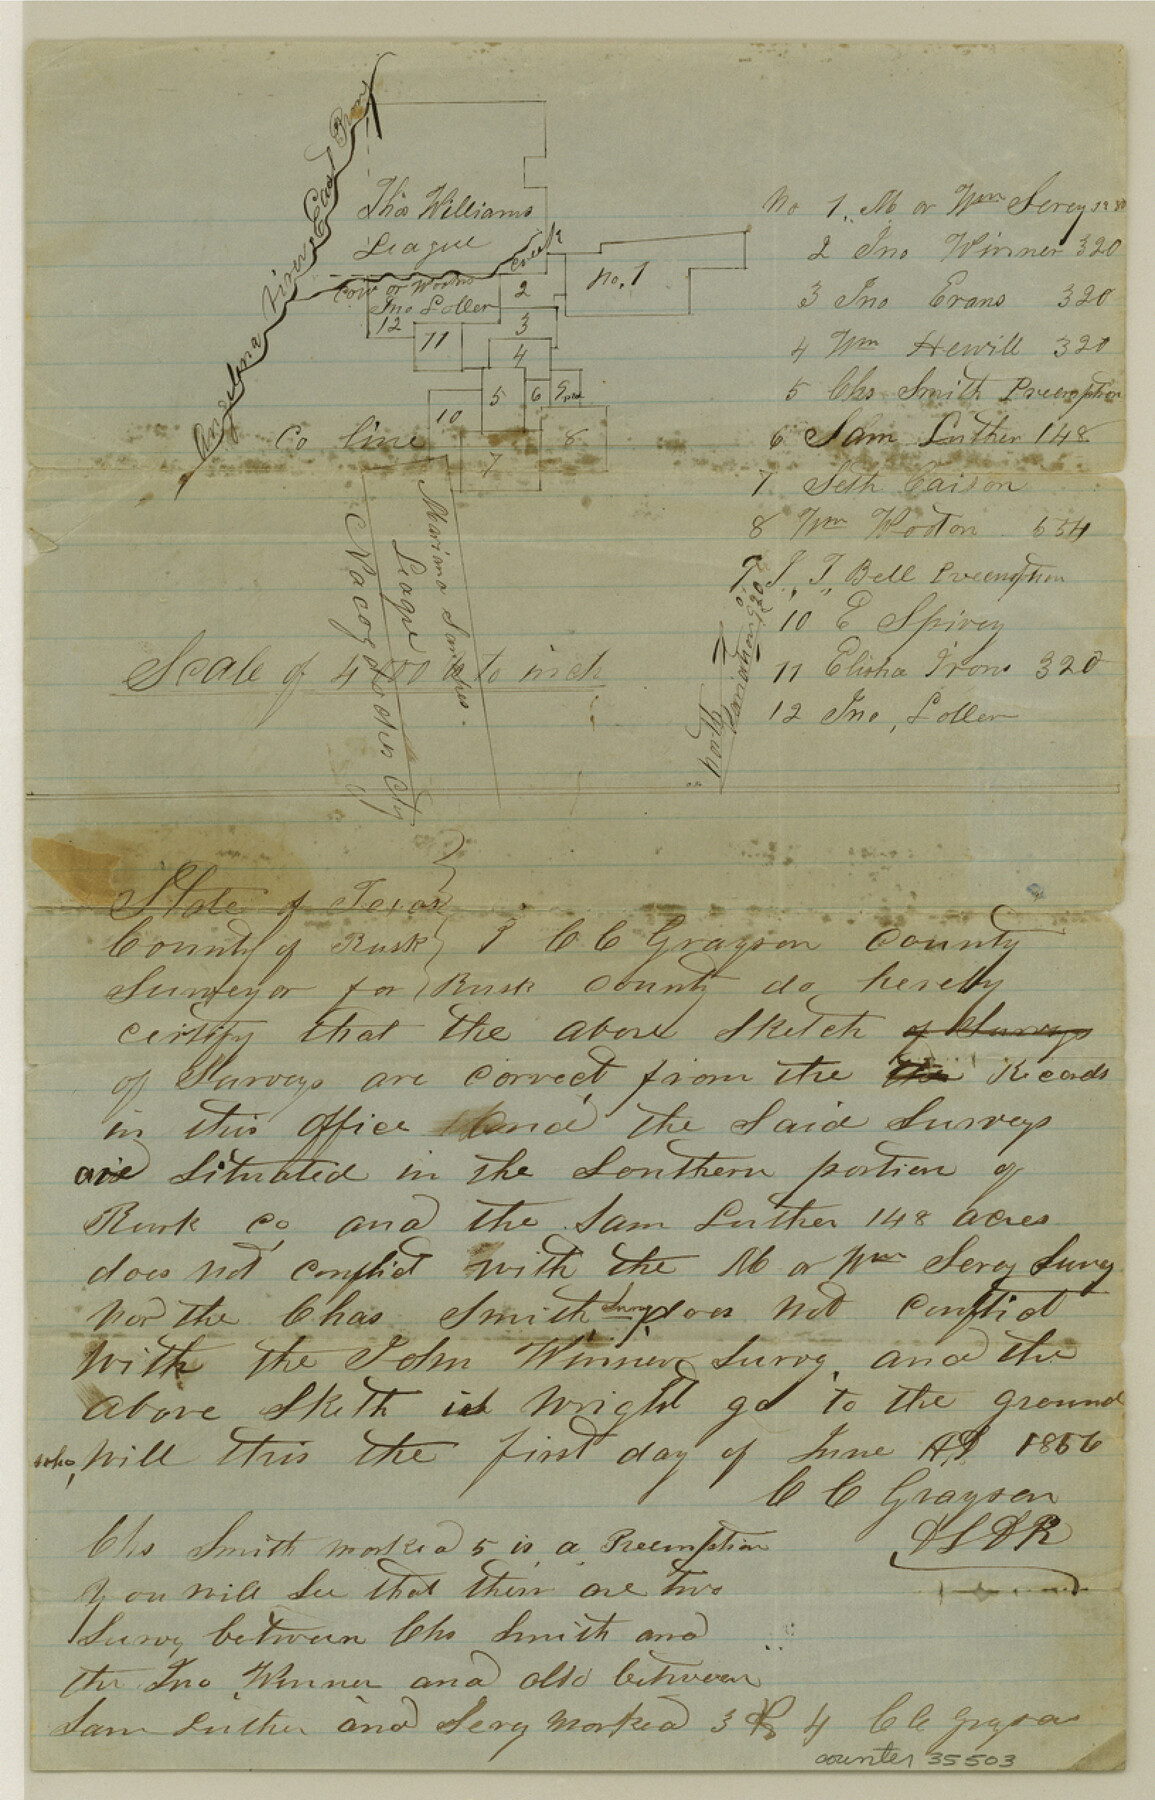 Angelina River East Prong
Thos Williams
League
Creek
Cow or Wooten
Jno Loller
No. 1
2
12
3
11
4
5
6
10
8
7
Co line
Mariana Sanches
League
Nacogdoches Cty
Scale of 4000 v to inch
North
Variation
No 1,, M or Wm Serey
2 Jno Winner 320
3 Jno Evans 320
4 Wm Hewill 320
5 Chs Smith Preemption
6 Sam Luther 148
7 Seth Caison
8 Wm Wooton 654
9 J,, T,, Bell Preemption
10 E Spivey
11 Elisha Irons 320
12 Jno, Loller
State of Texas
County of Rusk } I C C Grayson County
Surveyor for Rusk County do hereby
certify that the above sketch of Surveys
of Surveys are correct from the Records
in this Office And the Said Surveys
are Situated in the Southern portion of
Rusk Co and the Sam Luther 148 acres
does not conflict with the M or Wm Serey Survy
Nor the Chas Smith Survy does not conflict
with the John Winner Survy, and the
above Sketh is Wright go to the ground
who, will this the first day of June AD 1856
C C Grayson
DSDR
Chs Smith marked 5 is a Preemption
you will See that their are two
Survy between Chs Smith and
the Jno Winner and also between
Sam Luther and Serey marked 3 & 4 C C Grayson
counter 35503